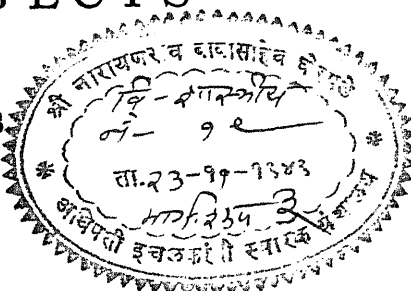 J E C T S
श्री नारायणराव बाबासाहेब घोरपडे
वि - शास्त्रीय
नं - १९
ता. २३-११-१९४३
अधिपती इचलकरंजी स्मारक ग्रंथालय